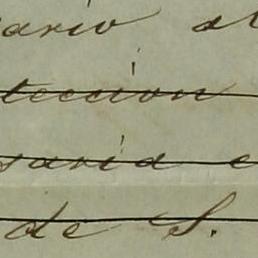 ario al
teccion
saria e
de S.